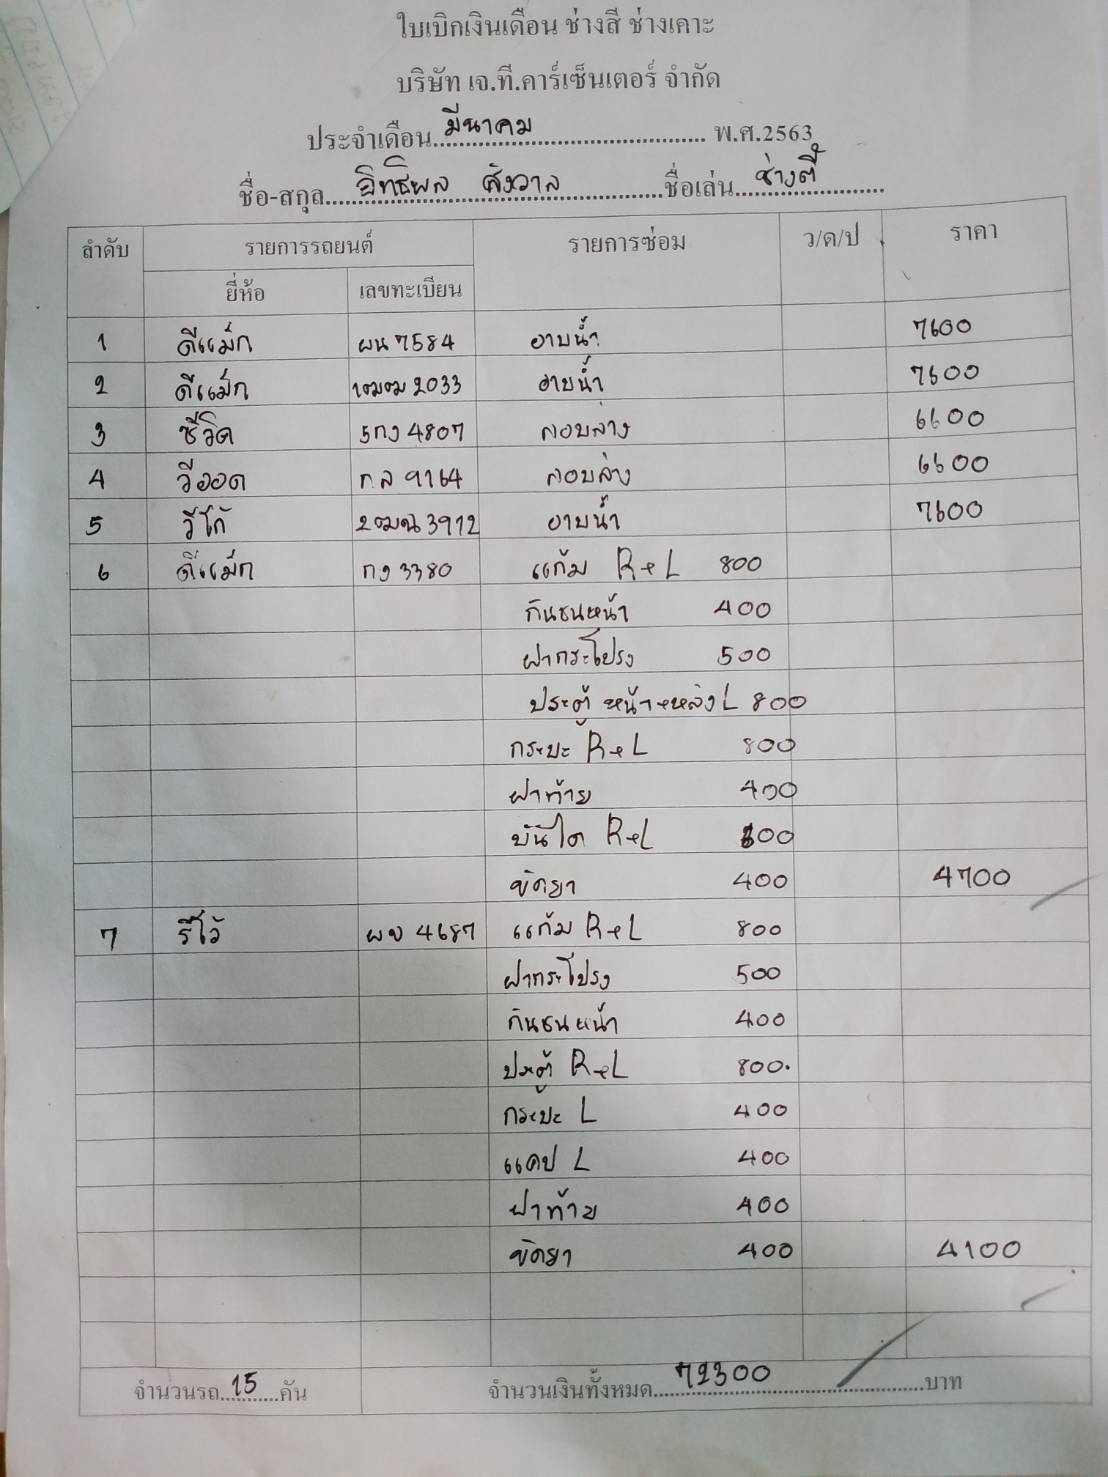 ใบเบิกเงินเดือน ช่างสี ช่างเคาะ
บริษัท เจ.ที.คาร์เซ็นเตอร์ จำกัด
ประจำเดือน มีนาคม พ.ศ.2563
ชื่อ-สกุล อิทธิพล สังวาล ชื่อเล่น ช่างตี๋
ลำดับ รายการรถยนต์ รายการซ่อม ว/ด/ป ราคา
ยี่ห้อ เลขทะเบียน
1 ดีแม็ก ผน 7584 อาบน้ำ 7600
2 ดีแม็ก 2033 อาบน้ำ 7600
3 ซีวิค 5กง 4807 ลอบล่าง 6600
4 วีออด กล 9164 ลอบล่าง 6600
5 วีโก้ 3912 อาบน้ำ 7600
6 ดีแม็ก กง 3380 แก้ม R+L 800
กันชนหน้า 400
ฝากระโปรง 500
ประตู หน้า+หลัง L 800
กระบะ R+L 800
ฝาท้าย 400
บันได R+L 600
ขัดยา 400 4700
7 รีโว้ ผข 4687 แก้ม R+L 800
ฝากระโปรง 500
กันชนหน้า 400
ประตู R+L 800.
กระบะ L 400
แคป L 400
ฝาท้าย 400
ขัดยา 400 4100
จำนวนรถ 15 คัน จำนวนเงินทั้งหมด 72300 บาท